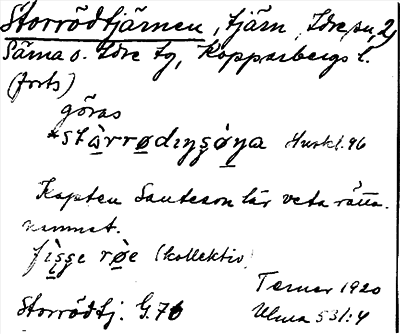 Storrödtjärnen, tjärn, Idre sn, 2)
Särna o. Idre tg, Kopparbergs l.
(forts)
göras
*stàrrødɩŋşǿŋa Huskl. 96
Kapten Santeson lär veta rätta
namnet.
fişge røe (kollektiv)
Terner 1920
Storrödtj. G. 76 Ulma 531:4